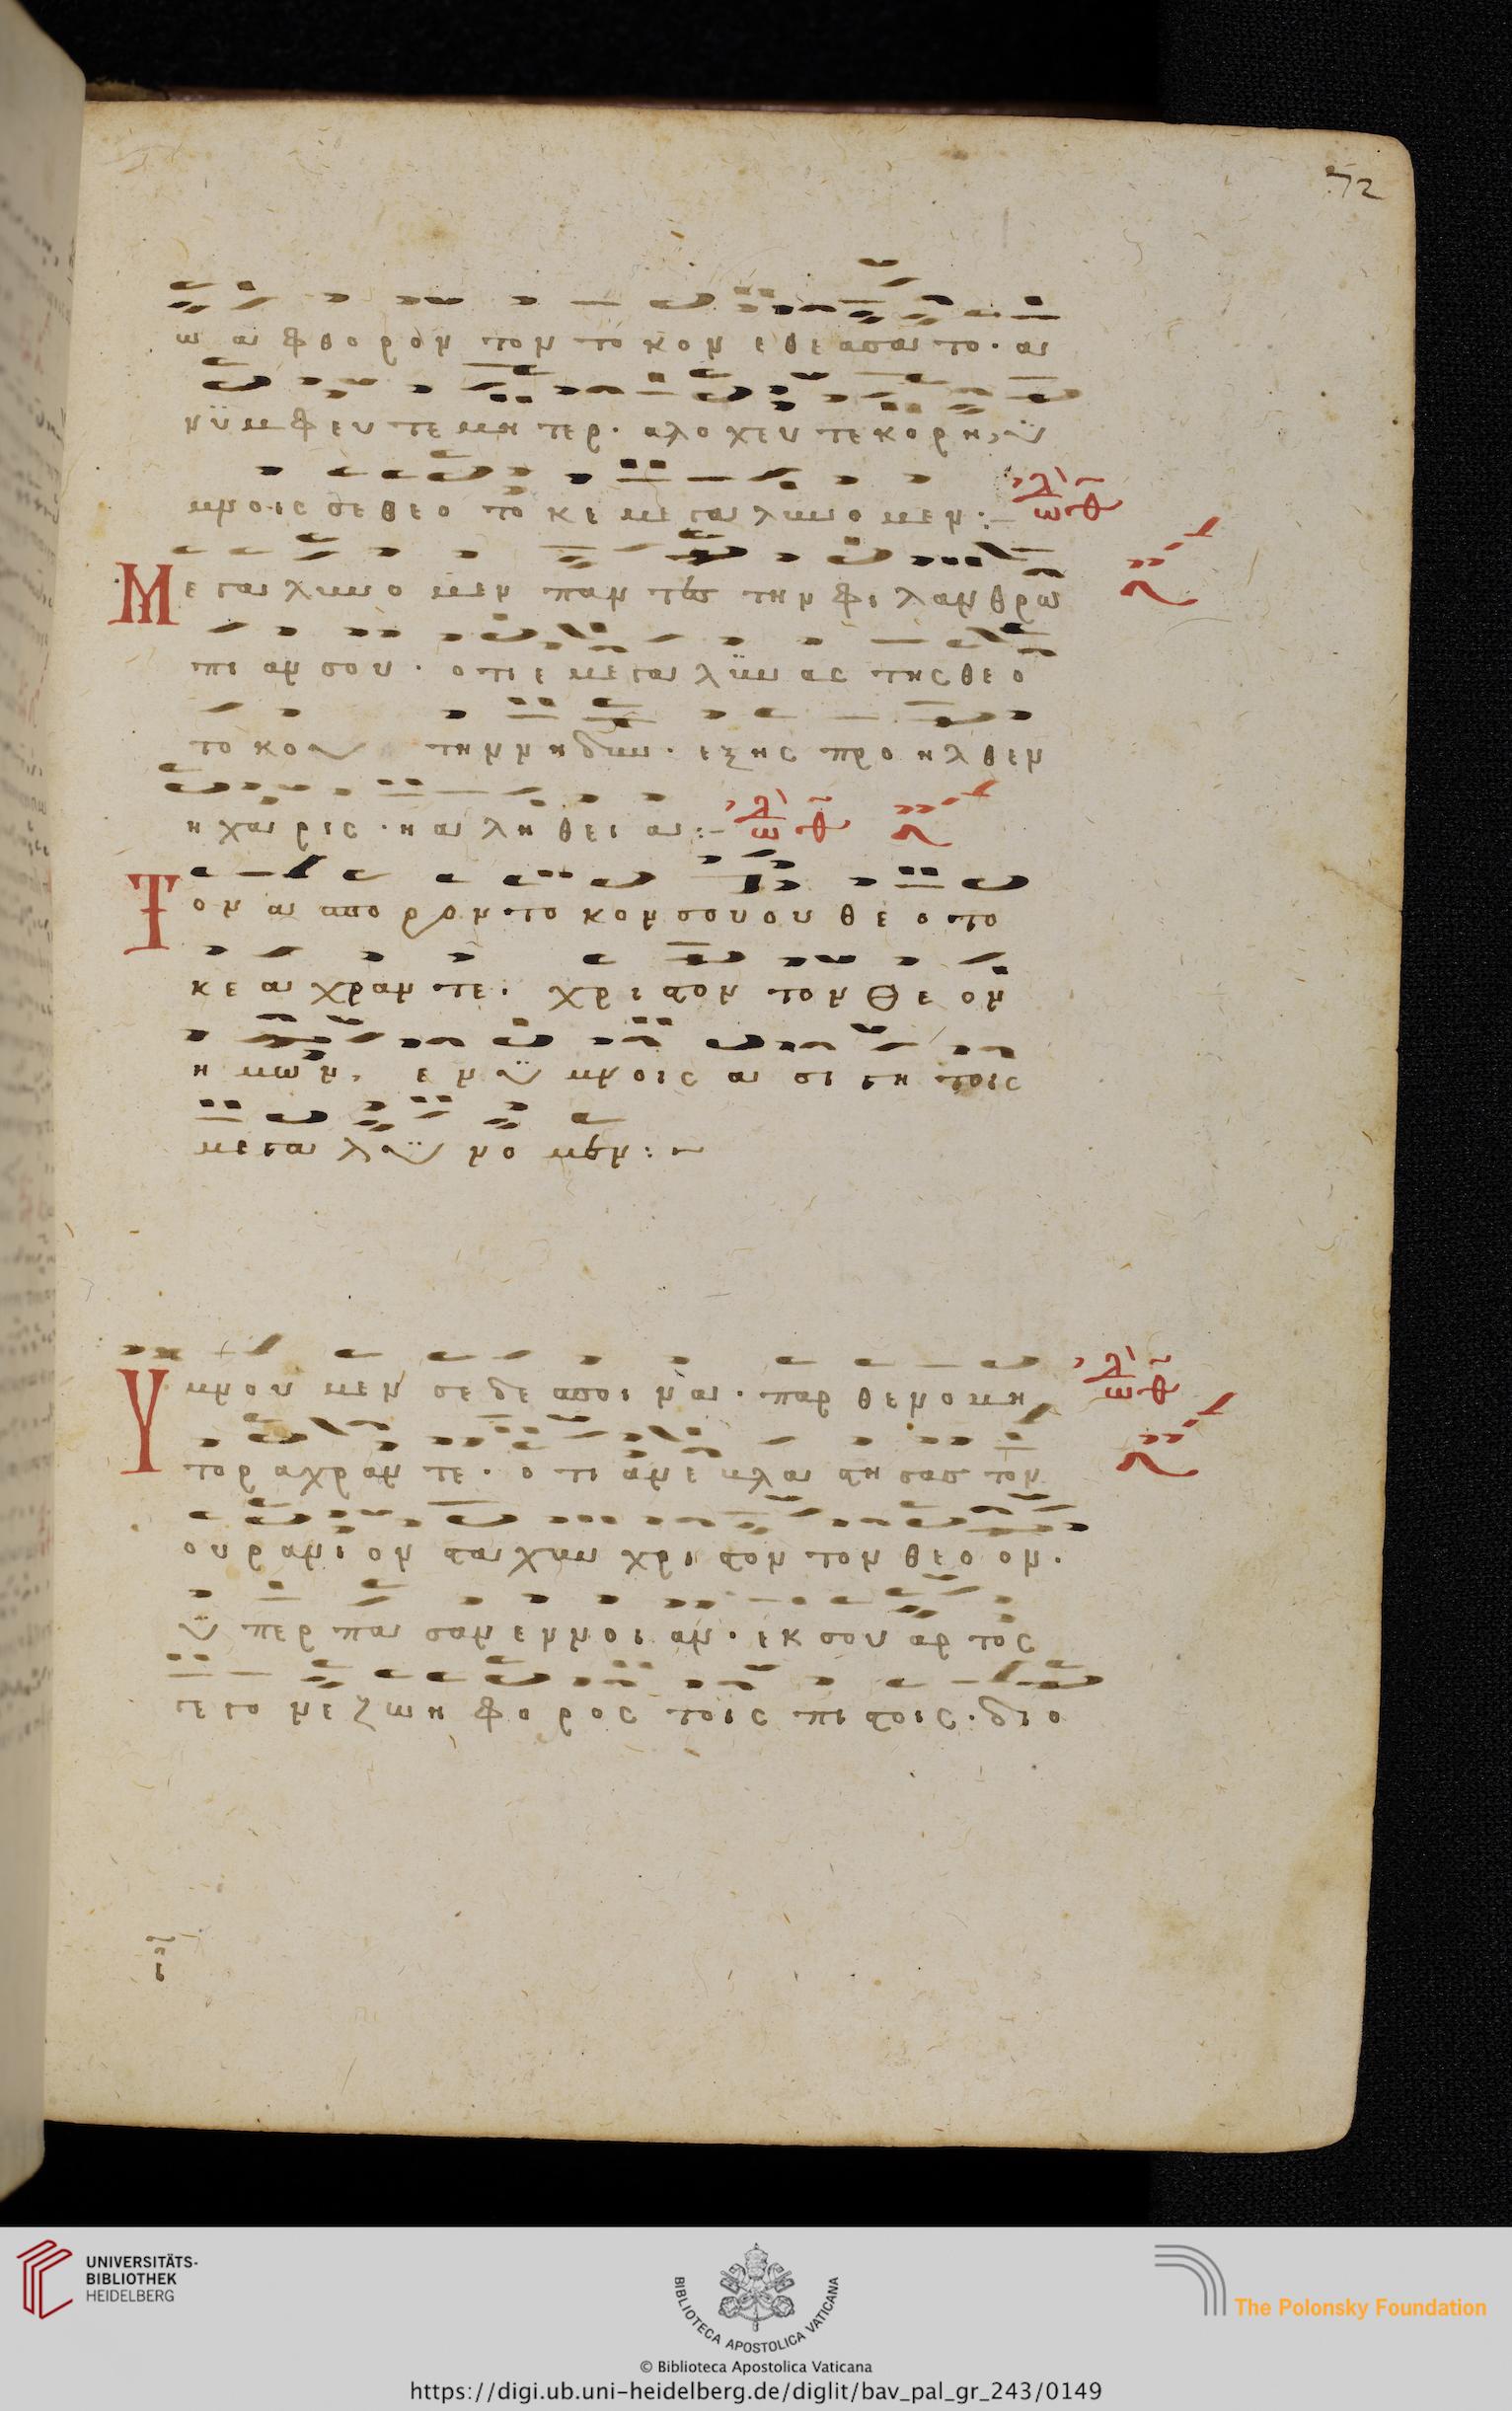 72
ω α φθορον τον το κον ε θε ασα το · α
νϋμφευ τε μη τερ · αλοχευ τε κορη, ϋ
μνοις σε θεο το κε μεγα λυνο μεν :–
Μεγα λυνο μεν παν τες την φι λαν θρω
πι αν σου · οτι ε μεγα λϋν ας της θε ο
το κου την νηδυν · εξης προ ηλ θεν
η χα ρις · η α λη θει α :–
Τον α σπο ρον το κον σου ου θε ο το
κε α χραν τε · χρι στον τον Θε ον
η μων, εν ϋ μνοις α σι γη τοις
μεγα λϋ νο μεν :~
Υμνου μεν σε δε σποι να · παρ θενομη
τορ αχραν τε · ο τι αν ε βλα στη σας τον
ουρανι ον σταχυν χρι στον τον θεο ον ·
ϋ περ πα σαν εννοι αν · εκ σου αρ τος
γε γο νε ζωη φο ρος τοις πι στοις · δι ο
UNIVERSITÄTS-
BIBLIOTHEK
HEIDELBERG
BIBLIOTECA APOSTOLICA VATICANA
The Polonsky Foundation
© Biblioteca Apostolica Vaticana
https://digi.ub.uni-heidelberg.de/diglit/bav_pal_gr_243/0149